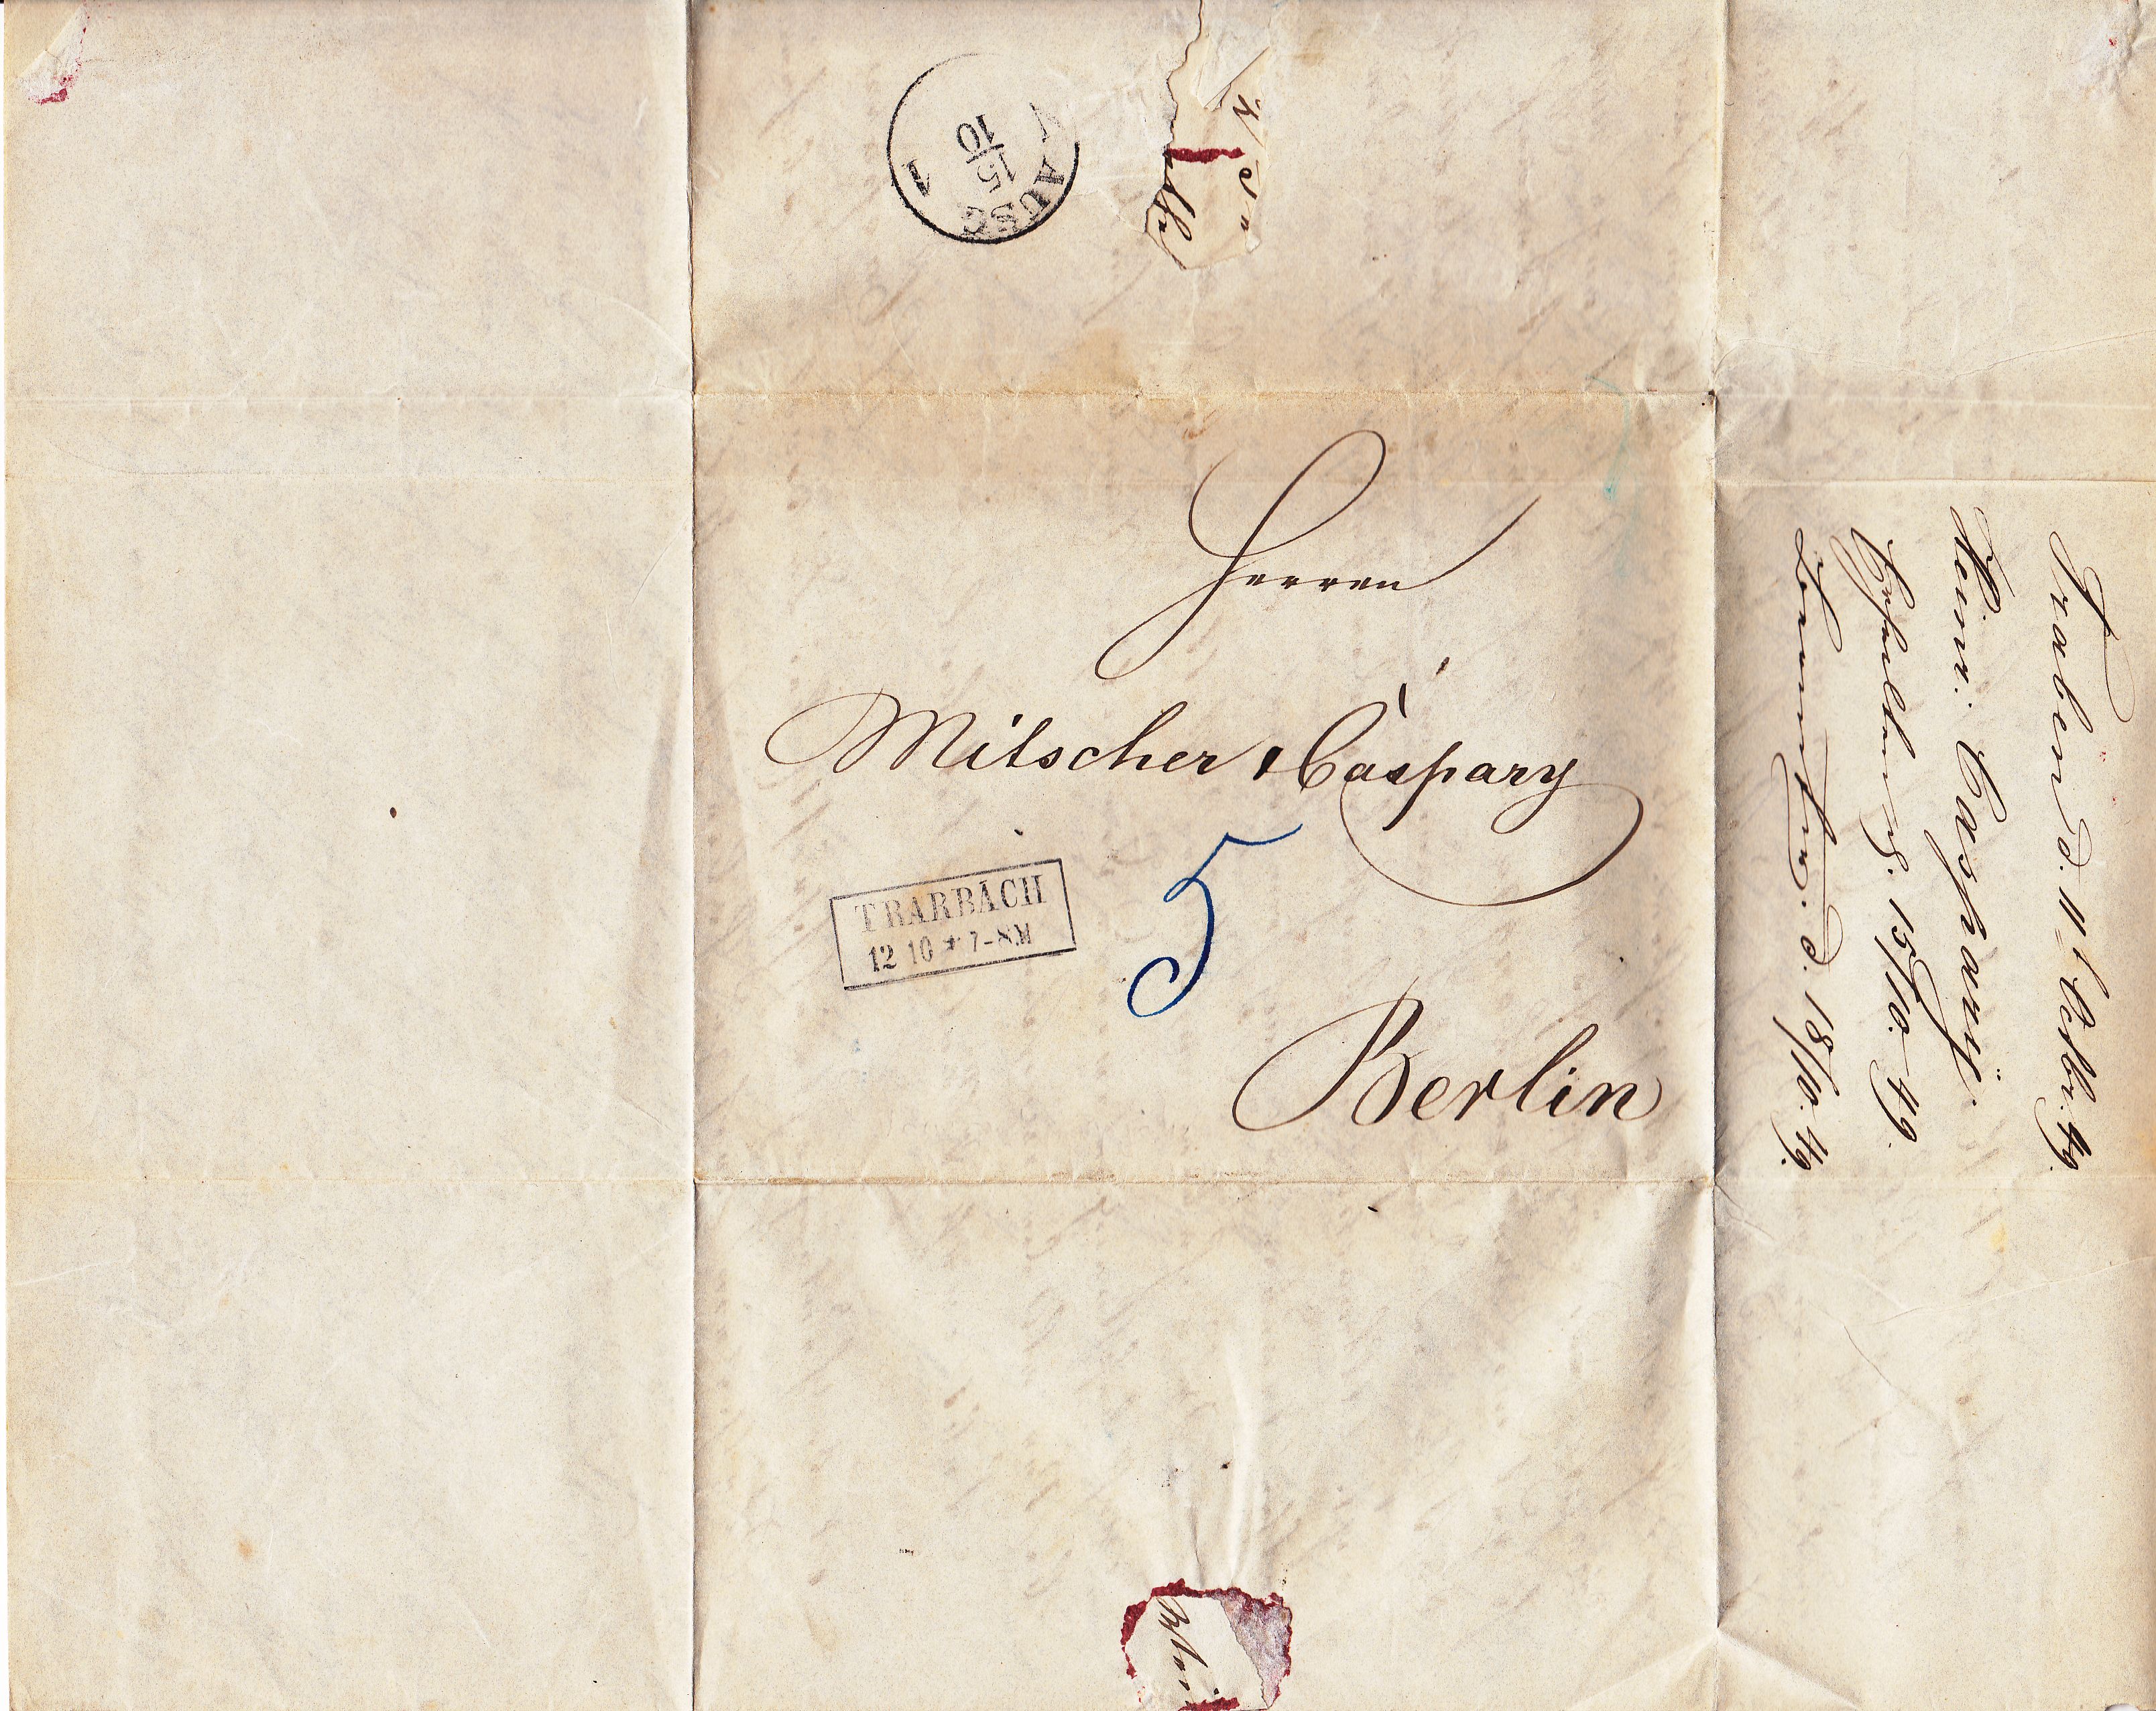 AUSG
15
10
1
Herren
Mitscher & Caspary
TRARBACH
12 10 * 7-8M
5
Berlin
Traben d. 11t Octbr. 49.
Heinr. Caspary.
Erhalten d. 15/10. 49.
Beantw. d. 18/10. 49.